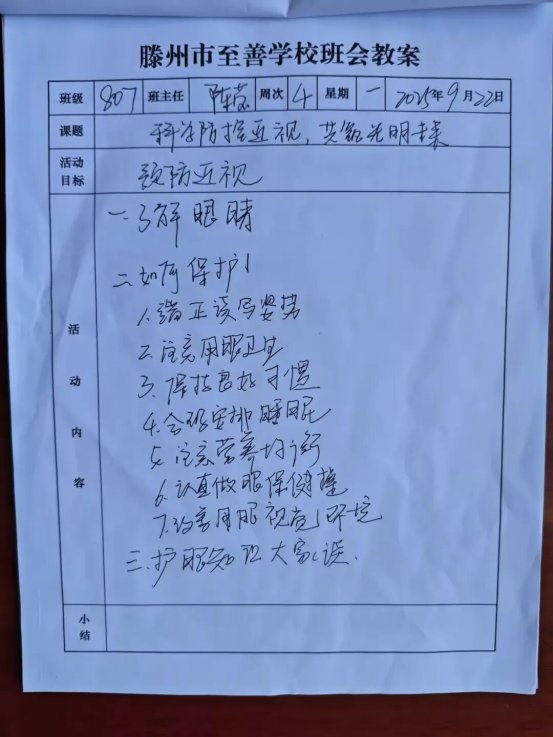 滕州市至善学校班会教案
班级 807 班主任 陈蕊 周次 4 星期 一 2025年9月22日
课题 科学防控近视，共筑光明未来
活动目标 预防近视
活动内容
一.了解眼睛
二.如何保护
1.端正读写姿势
2.注意用眼卫生
3.保持良好习惯
4.合理安排睡眠
5.注意营养均衡
6.认真做眼保健操
7.改善用眼视觉环境
三.护眼知识大家谈.
小结